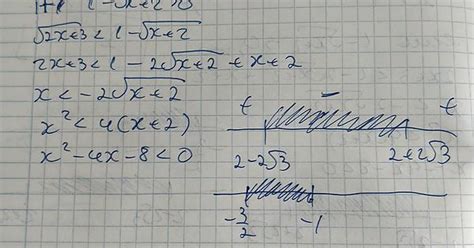 1 - √x+2 ≥ 0
√2x+3 < 1 - √x+2
2x+3 < 1 - 2√x+2 + x+2
x < -2√x+2
x² < 4(x+2)
x² - 4x - 8 < 0
+ - +
2-2√3 2+2√3
-3/2 -1